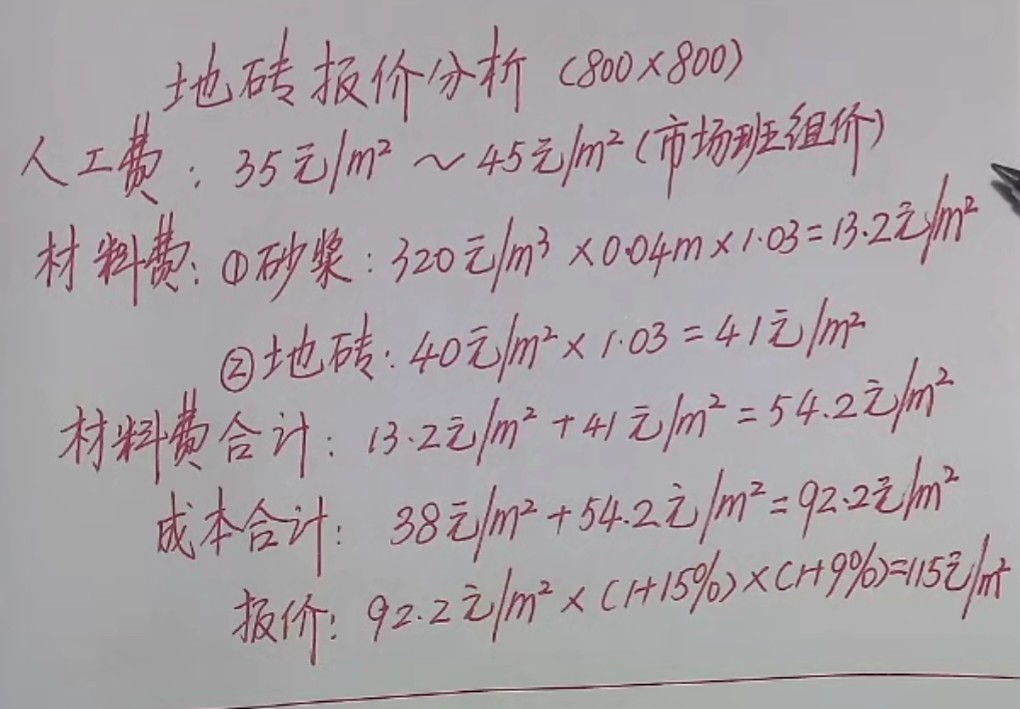 地砖报价分析（800×800）
人工费：35元/m²～45元/m²（市场班组价）
材料费：①砂浆：320元/m³×0.04m×1.03=13.2元/m²
②地砖：40元/m²×1.03=41元/m²
材料费合计：13.2元/m²+41元/m²=54.2元/m²
成本合计：38元/m²+54.2元/m²=92.2元/m²
报价：92.2元/m²×(1+15%)×(1+9%)=115元/m²